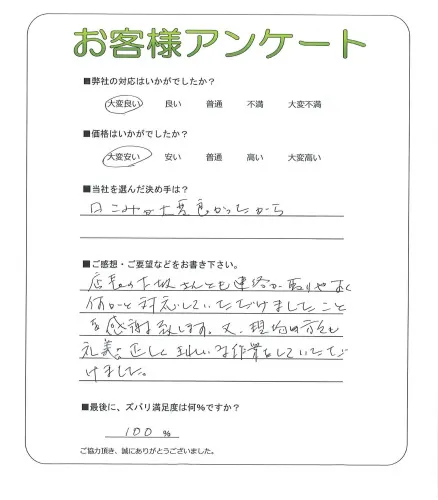 お客様アンケート
■弊社の対応はいかがでしたか?
大変良い 良い 普通 不満 大変不満
■価格はいかがでしたか?
大変安い 安い 普通 高い 大変高い
■当社を選んだ決め手は?
口こみが大変良かったから
■ご感想・ご要望などをお書き下さい。
店長の さんとも連絡が取りやすく
何かと対応していただけましたこと
を感謝致します。又、現場の方も
礼義正しく 作業をしていただ
けました。
■最後に、ズバリ満足度は何%ですか?
100 %
ご協力頂き、誠にありがとうございました。